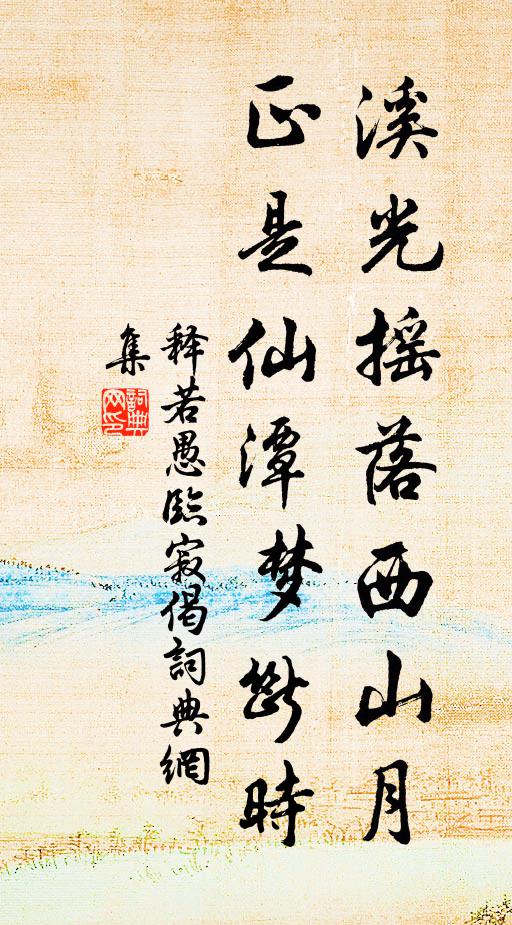 溪光摇落西山月
正是仙潭梦断时
释若愚临寂偈词典網
集
詞典网印